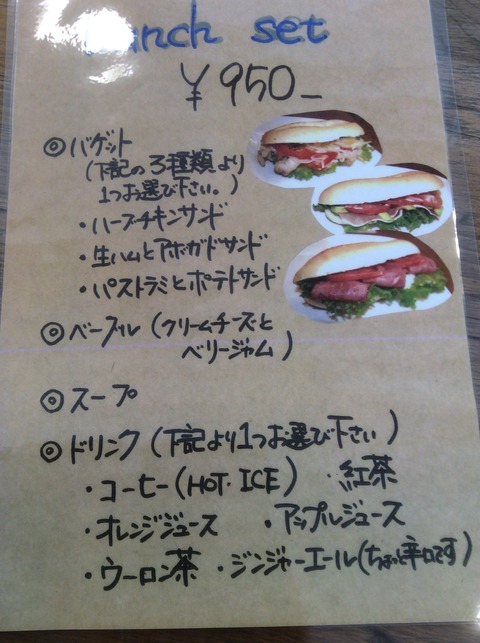 Lunch set
¥950-
◎バゲット
(下記の3種類より
1つお選び下さい。)
・ハーブチキンサンド
・生ハムとアボガドサンド
・パストラミとポテトサンド
◎ベーグル(クリームチーズと
ベリージャム)
◎スープ
◎ドリンク(下記より1つお選び下さい)
・コーヒー(HOT・ICE) ・紅茶
・オレンジジュース ・アップルジュース
・ウーロン茶 ・ジンジャーエール(ちょっと辛口です)